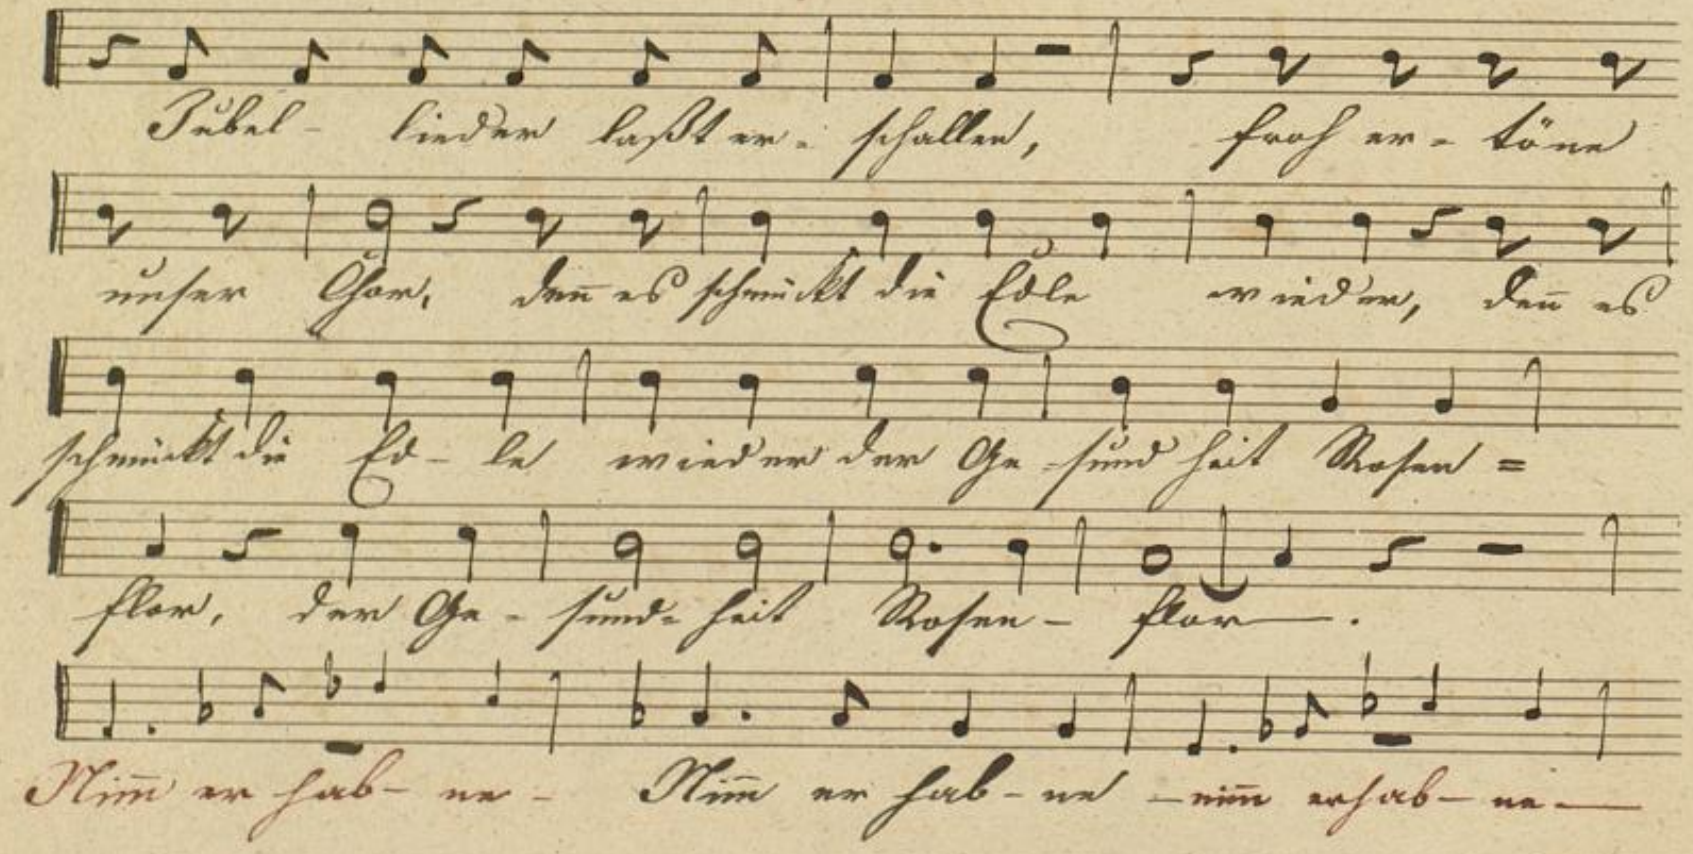 Jubel- lieder laßt er- schallen, froh er- töne
unser Chor, deñ es schmückt die Edle wieder, deñ es
schmückt die Ed- le wieder der Ge- sund heit Rosen =
flor, der Ge- sund- heit Rosen- flor —.
Nim̃ er hab- ne - Nim̃ er hab- ne - nim̃ erhab- ne —